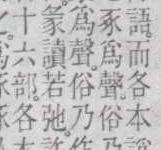 語。而各本
豕爲聲俗
爲聲。俗乃
彖讀若弛。
十六部。各